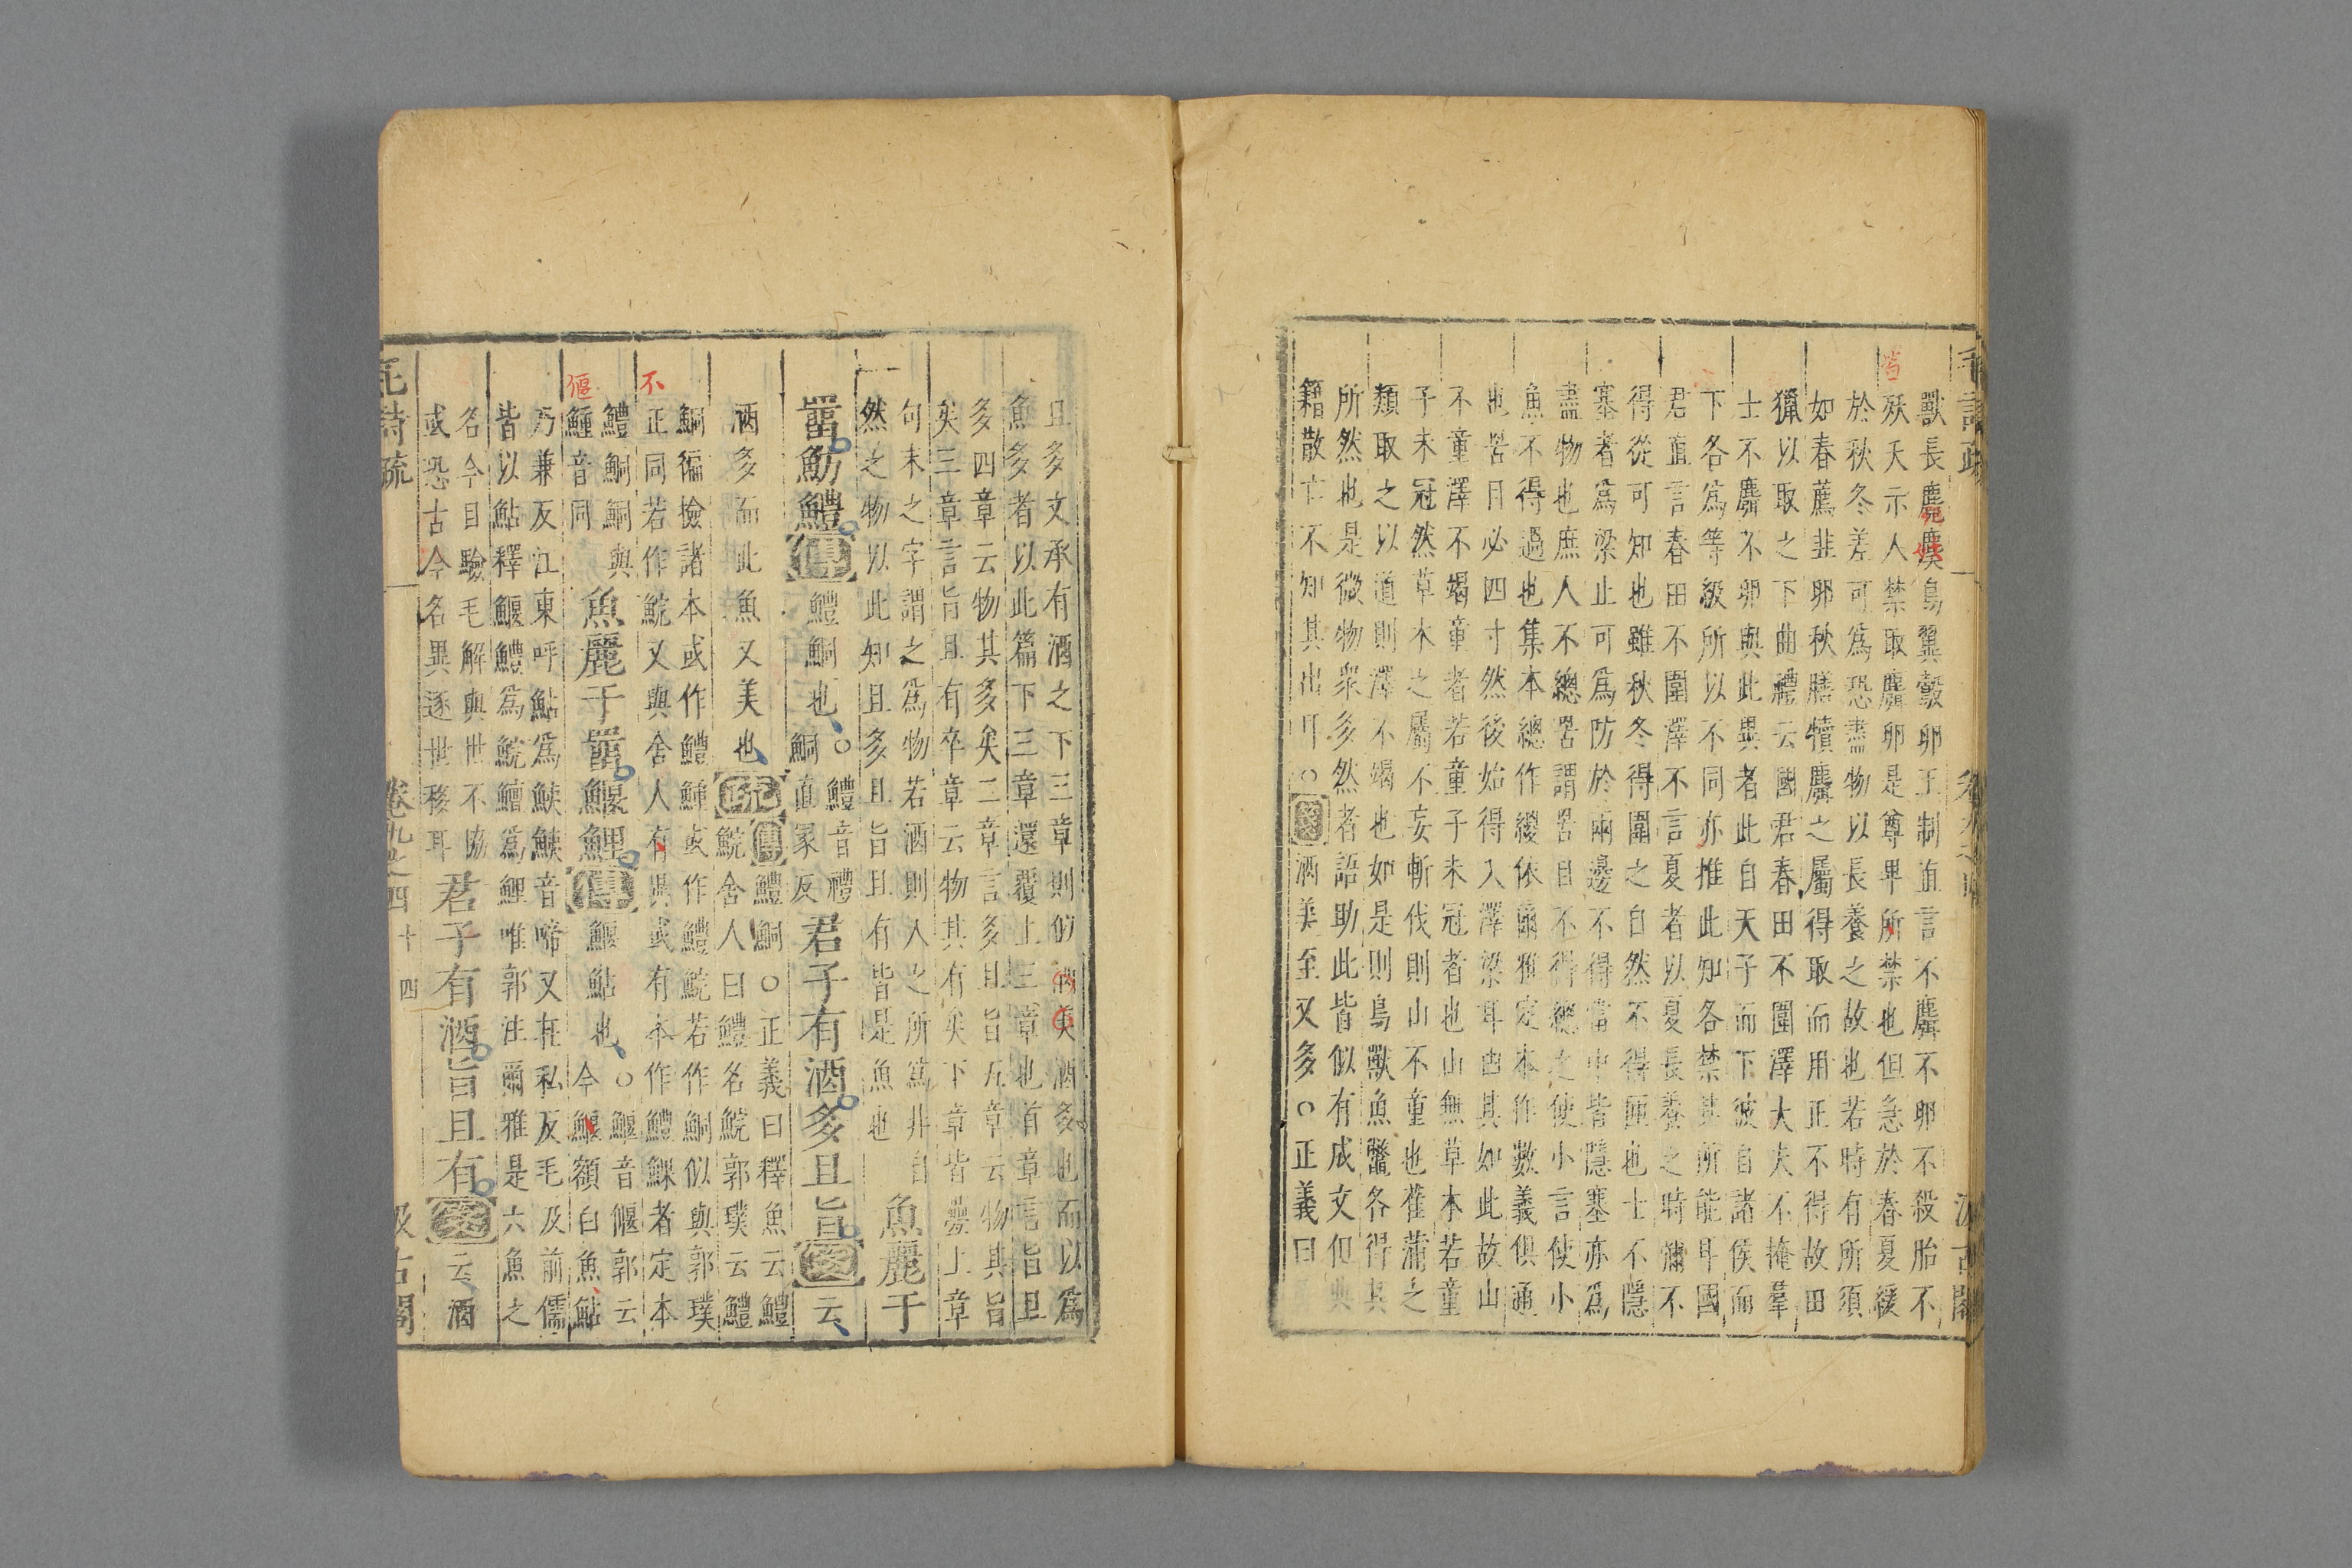 毛詩疏 卷九之四 汲古閣
獸長麑麌鳥翼鷇卵王制直言不麛不卵不殺胎不
殀夭示人禁取麛卵是尊卑所禁也但急於春夏緩
於秋冬差可爲恐盡物以長養之故也若時有所須
如春薦韭卵秋膳犢麛之屬得取而用正不得故田
獵以取之下曲禮云國君春田不圍澤大夫不掩羣
士不麛不卵與此異者此自天子而下彼自諸侯而
下各爲等級所以不同亦推此知各禁其所能耳國
君直言春田不圍澤不言夏者以夏長養之時彌不
得從可知也雖秋冬得圍之自然不得匝也士不隱
塞者爲梁止可爲防於兩邊不得當中皆隱塞亦爲
盡物也庶人不總罟謂罟目不得總之使小言使小
魚不得過也集本總作緵依爾雅定本作數義俱通
也罟目必四寸然後始得入澤梁耳由其如此故山
不童澤不竭童者若童子未冠者也山無草木若童
子未冠然草木之屬不妄斬伐則山不童也萑蒲之
類取之以道則澤不竭也如是則鳥獸魚鼈各得其
所然也是微物衆多然者語助此皆似有成文但典
籍散亡不知其出耳○箋酒美至又多○正義曰
且多文承有酒之下三章則似酒美酒多也而以爲
魚多者以此篇下三章還覆上三章也首章言旨且
多四章云物其多矣二章言多且旨五章云物其旨
矣三章言旨且有卒章云物其有矣下章皆疊上章
句末之字謂之爲物若酒則人之所爲非自
然之物以此知且多且旨且有皆是魚也
魚麗于
罶魴鱧傳鱧鮦也○鱧音禮
鮦直冢反
君子有酒多且旨箋云
酒多而此魚又美也疏傳鱧鮦○正義曰釋魚云鱧
鯇舍人曰鱧名鯇郭璞云鱧
鮦徧檢諸本或作鱧鯶或作鱧鯇若作鮦似與郭璞
不
正同若作鯇又與舍人有異或有本作鱧鰥者定本
鱧鮦鮦與
偃
鯶音同
魚麗于罶鰋鯉傳鰋鮎也○鰋音偃郭云
今鰋額白魚鮎
乃兼反江東呼鮎爲鮧鮧音啼又在私反毛及前儒
皆以鮎釋鰋鱧爲鯇鱣爲鯉唯郭注爾雅是六魚之
名今目驗毛解與世不協
或恐古今名異逐世移耳
君子有酒旨且有箋云酒
毛詩疏 卷九之四 十四 汲古閣